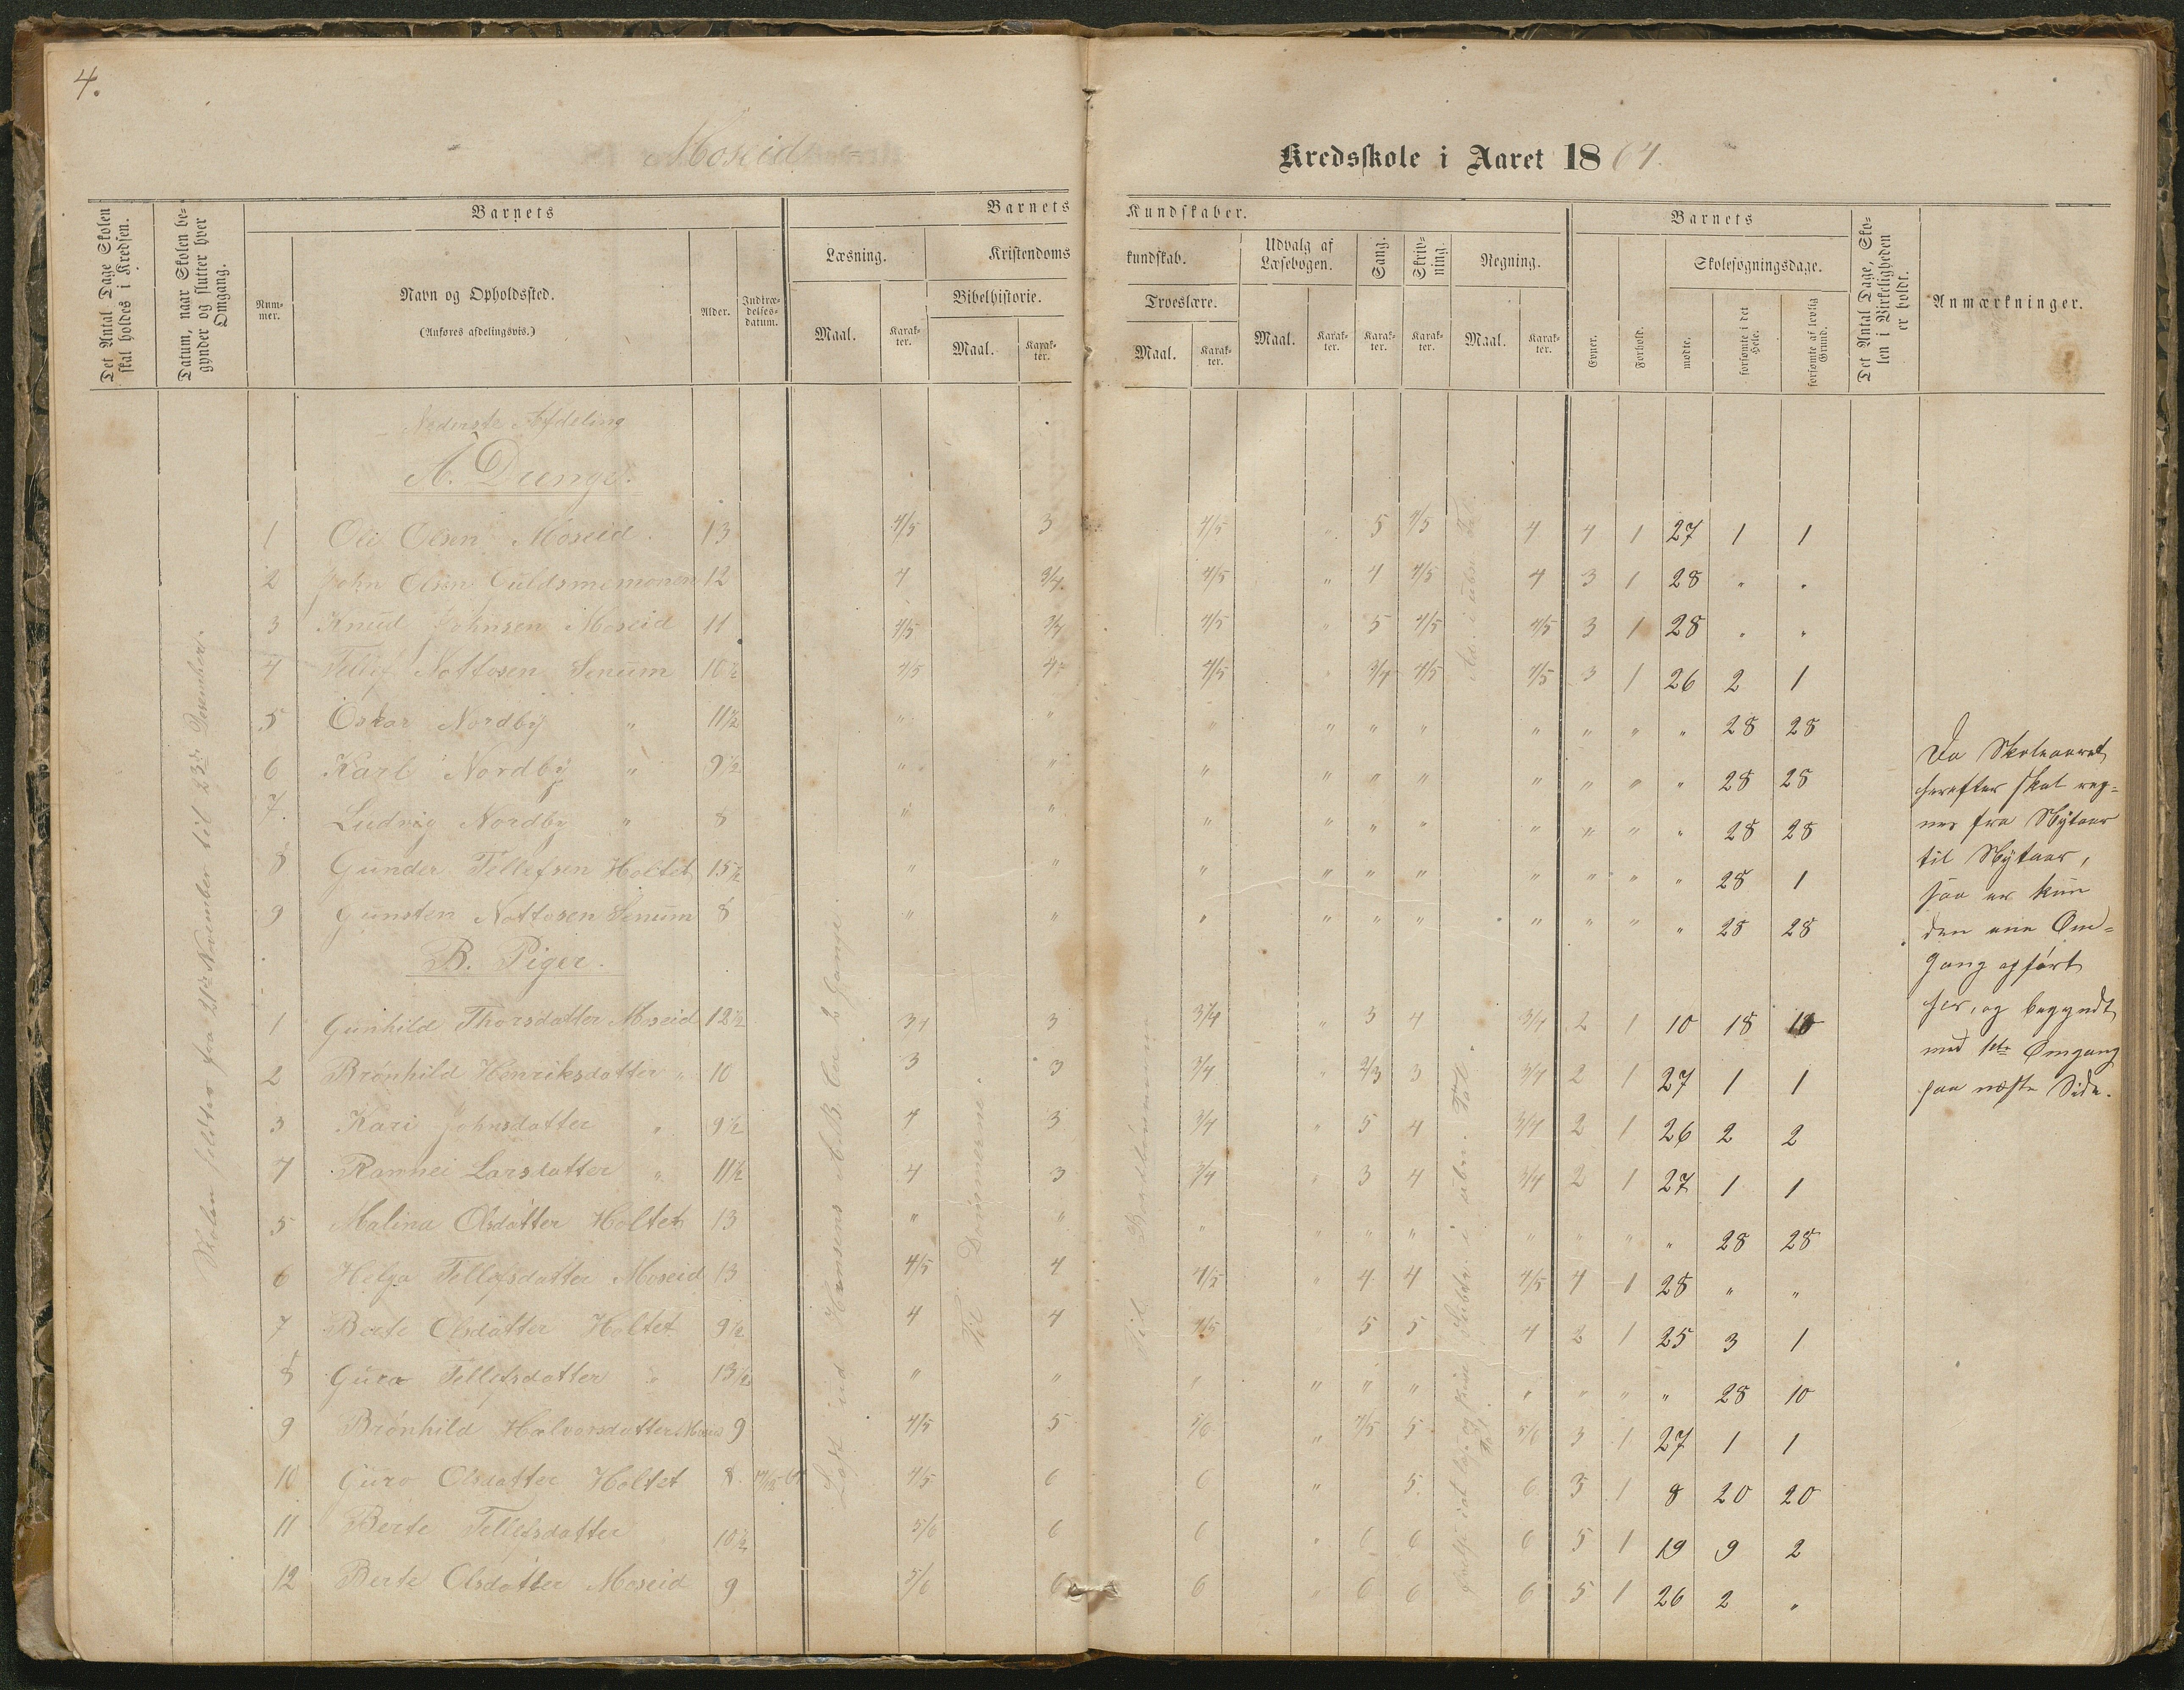 4.
Moseid Kredsskole i Aaret 1864.
Det Antal Dage Skolen skal holdes i Kredsen.
Datum, naar Skolen begynder og slutter hver Omgang.
Barnets
Nummer.
Navn og Opholdssted.
(Anføres afdelingsvis.)
Alder.
Indtrædelsesdatum.
Barnets Kundskaber.
Læsning.
Maal.
Karakter.
Kristendomskundskab.
Bibelhistorie.
Maal.
Karakter.
Troeslære.
Maal.
Karakter.
Udvalg af Læsebogen.
Maal.
Karakter.
Sang.
Karakter.
Skrivning.
Karakter.
Regning.
Maal.
Karakter.
Barnets
Evner.
Forhold.
Skolesøgningsdage.
mødte.
forsømte i det Hele.
forsømte af lovlig Grund.
Det Antal Dage, Skolen i Virkeligheden er holdt.
Anmærkninger.
Skolen holdtes fra 21de November til 23de Desember.
Nederste Afdeling
A. Drenge.
1 Ole Olsen Moseid. 13 4/5 3 4/5 " 5 4/5 4 4 1 27 1 1
2 John Olsen 12 4 3/4 4/5 " 4 4/5 4 3 1 28 " "
3 Knud Johnsen Moseid 11 4/5 3/4 4/5 " 5 4/5 4/5 3 1 28 " "
4 Tellef Nottosen Senum 10½ 4/5 4 4/5 " 3/4 4/5 4/5 3 1 26 2 1
5 Oskar Nordby " 11½ " " " " " " " " " " 28 28
6 Karl Nordby " 9½ " " " " " " " " " " 28 28
7. Ludvig Nordby " 8 " " " " " " " " " " 28 28
8 Gunder Tellefsen Holtet 15½ " " " " " " " " " " 28 1
9 Gunsten Nottosen Senum 8 " " " " " " " " " " 28 28
B. Piger.
1 Gunhild Thorsdatter Moseid 12½ 3/4 3 3/4 " 3 4 3/4 2 1 10 18 18
2 Brønhild Henriksdatter " 10 3 3 3/4 " 2/3 3 3/4 2 1 27 1 1
3 Kari Johnsdatter " 9½ 4 3 3/4 " 5 4 3/4 2 1 26 2 2
4 Ramnei Larsdatter " 11½ 4 3 3/4 " 3 4 3/4 2 1 27 1 1
5 Malina Olsdatter Holtet 13 " " " " " " " " " " 28 28
6 Helga Tellefsdatter Moseid 13 4/5 4 4/5 " 4 4 4/5 4 1 28 " "
7 Berte Olsdatter Holtet 9½ 4 4 4/5 5 5 4 2 1 25 3 1
8 Guro Tellefsdatter " 13½ " " " " " " " " " " 28 10
9 Brønhild Halvorsdatter 9 4/5 5 5/6 " 4/5 5 5/6 3 1 27 1 1
10 Guro Olsdatter Holtet 8 4/5 6 6 " 5 6 3 1 8 20 20
11 Berte Tellefsdatter 10½ 5/6 6 6 " 6 6 6 5 1 19 9 2
12 Berte Olsdatter Moseid 9 5/6 6 6 " 6 6 6 5 1 26 2 "
Læst ud Hansens A.B.C. 2 Gange.
Til Dommerne.
Til
Da Skoleaaret
herefter skal reg=
nes fra Nytaar
til Nytaar,
saa er kun
den ene Om=
gang opført
her, og begyndt
med 1ste Omgang
paa næste Side.